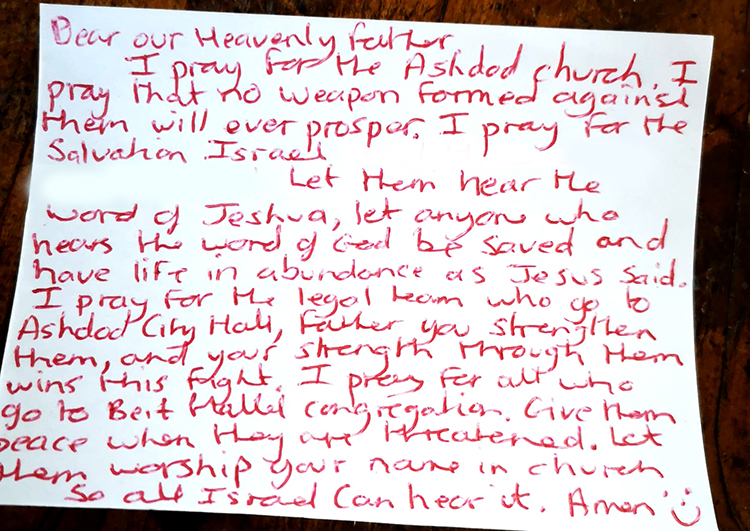 Dear our Heavenly father
I pray for the Ashdod church. I
pray that no weapon formed against
them will ever prosper. I pray for the
Salvation Israel
Let them hear the
word of Jeshua, let anyone who
hears the word of God be saved and
have life in abundance as Jesus said.
I pray for the legal team who go to
Ashdod City Hall, Father you strengthen
them, and your strength through them
wins this fight. I pray for all who
go to Beit Hallel congregation. Give them
peace when they are threatened. Let
them worship your name in church
So all Israel can hear it. Amen